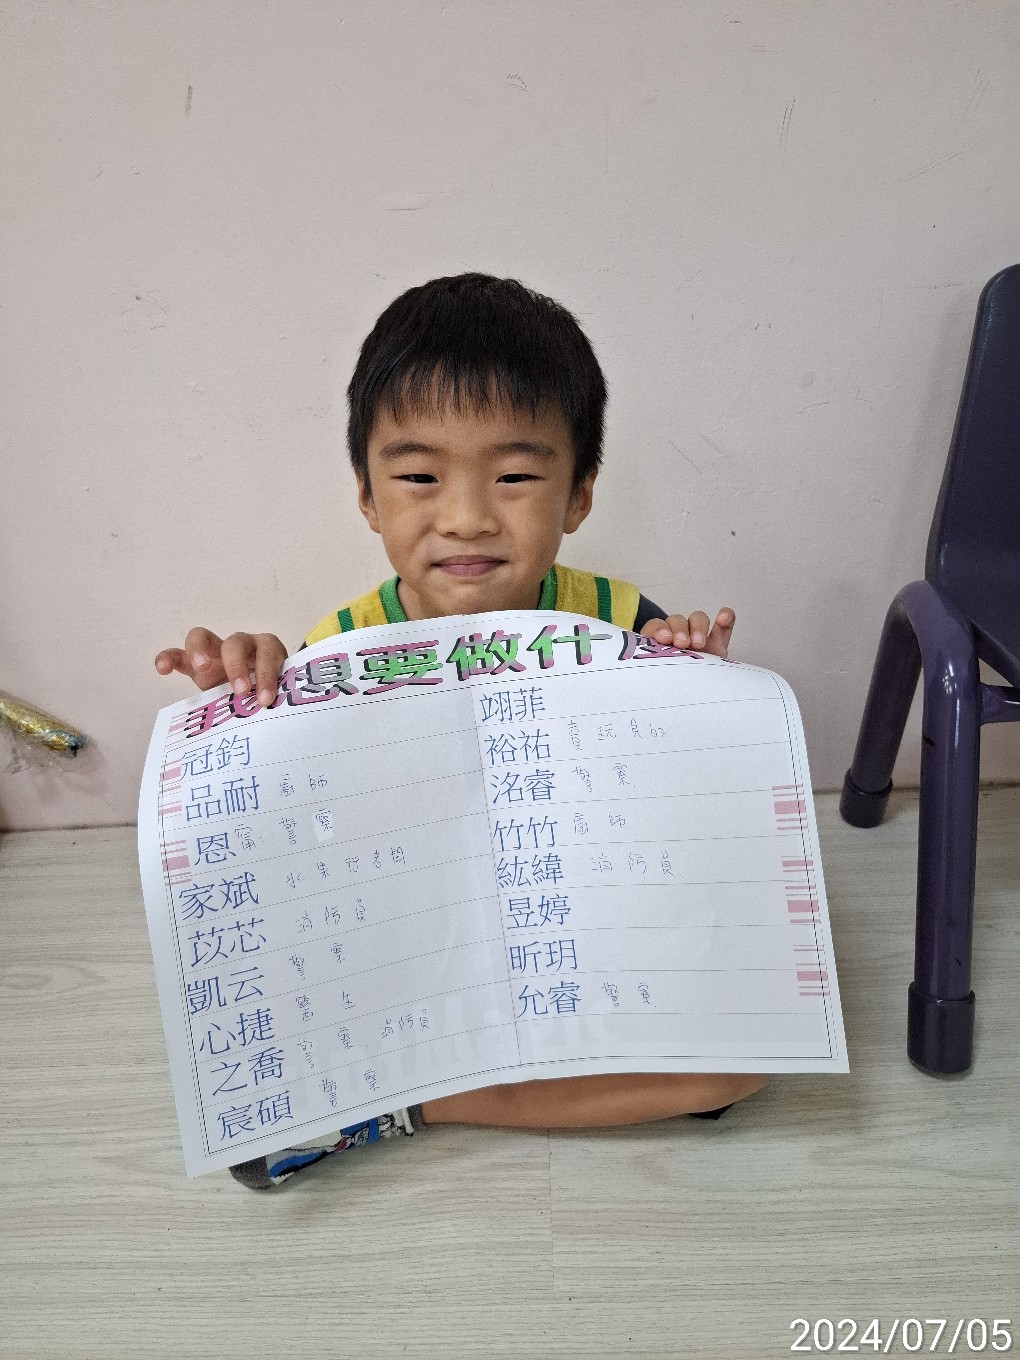 我想要做什麼
冠鈞
品耐 廚師
恩甯 警察
家斌 水果
苡芯 消防員
凱云 警察
心捷 醫生
之喬 警察 消防員
宸碩 警察
翊菲
裕祐 賣玩具的
洺睿 警察
竹竹 廚師
紘緯 消防員
昱婷
昕玥
允睿 警察
2024/07/05